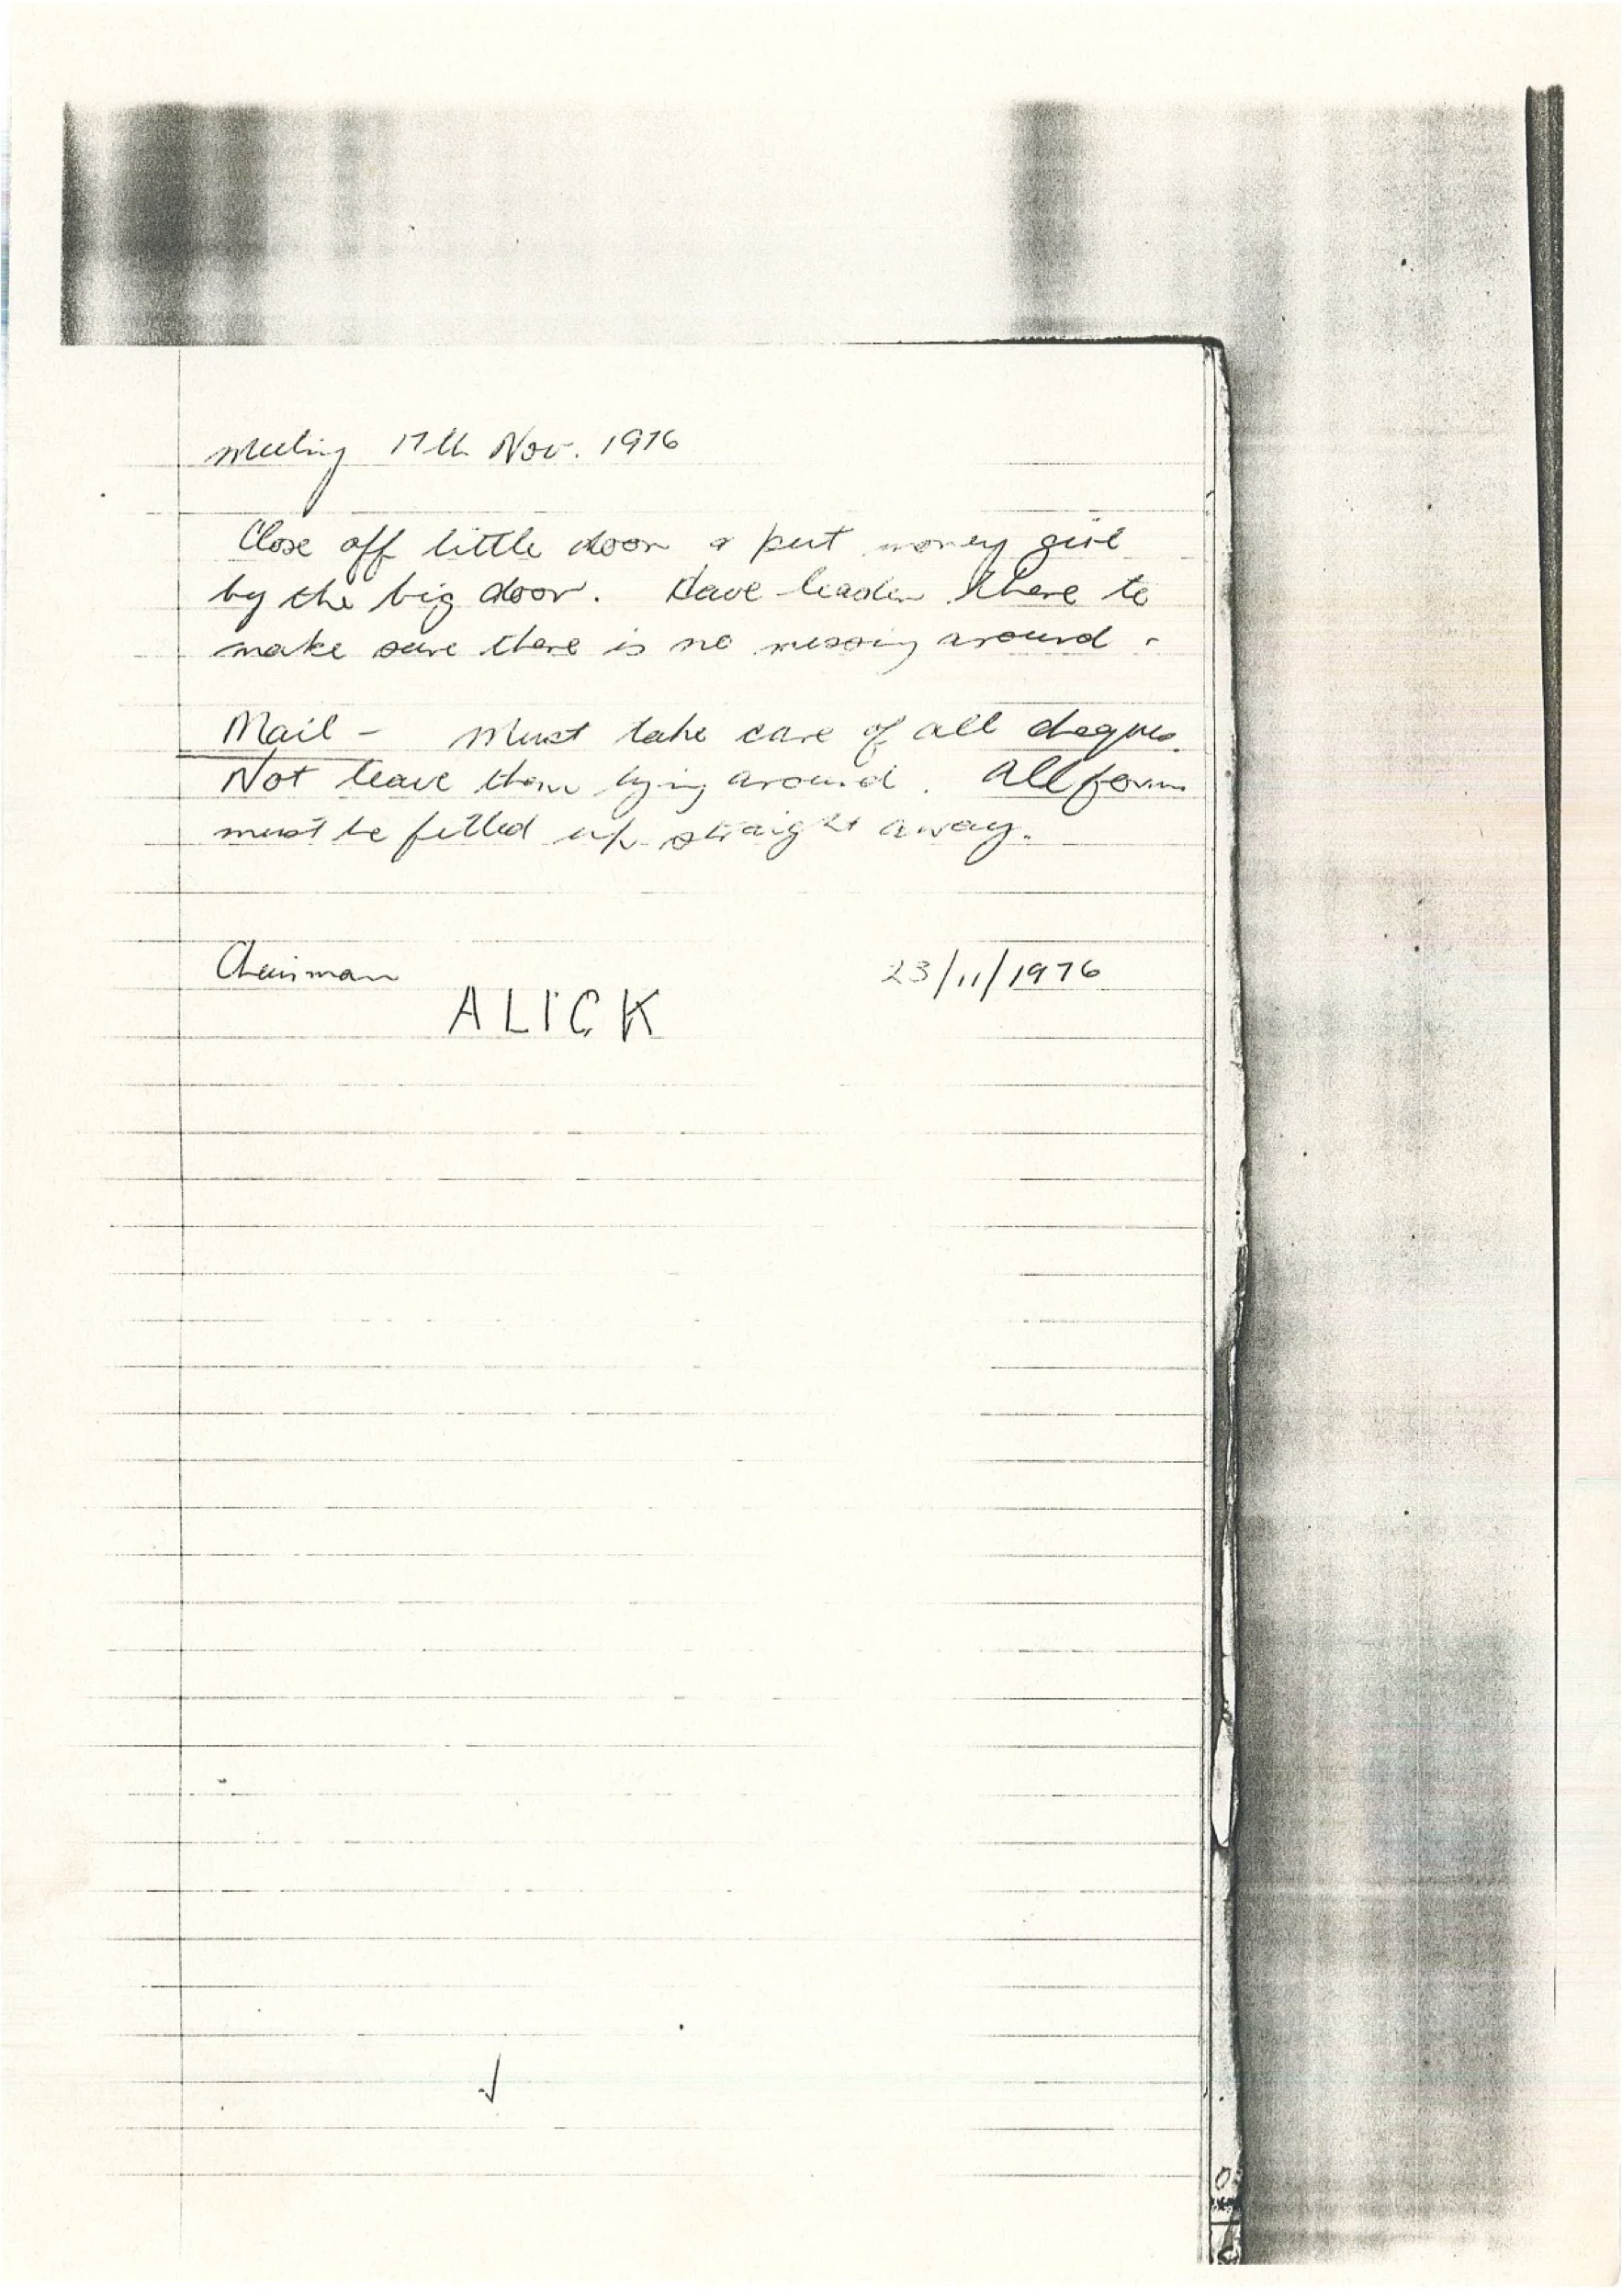 Meeting 17th Nov. 1976
Close off little door & put money girl
by the big door. Have leader there to
make sure there is no messing around.
Mail - Must take care of all cheques.
Not leave them lying around. All forms
must be filled up straight away.
Chairman 23/11/1976
ALICK